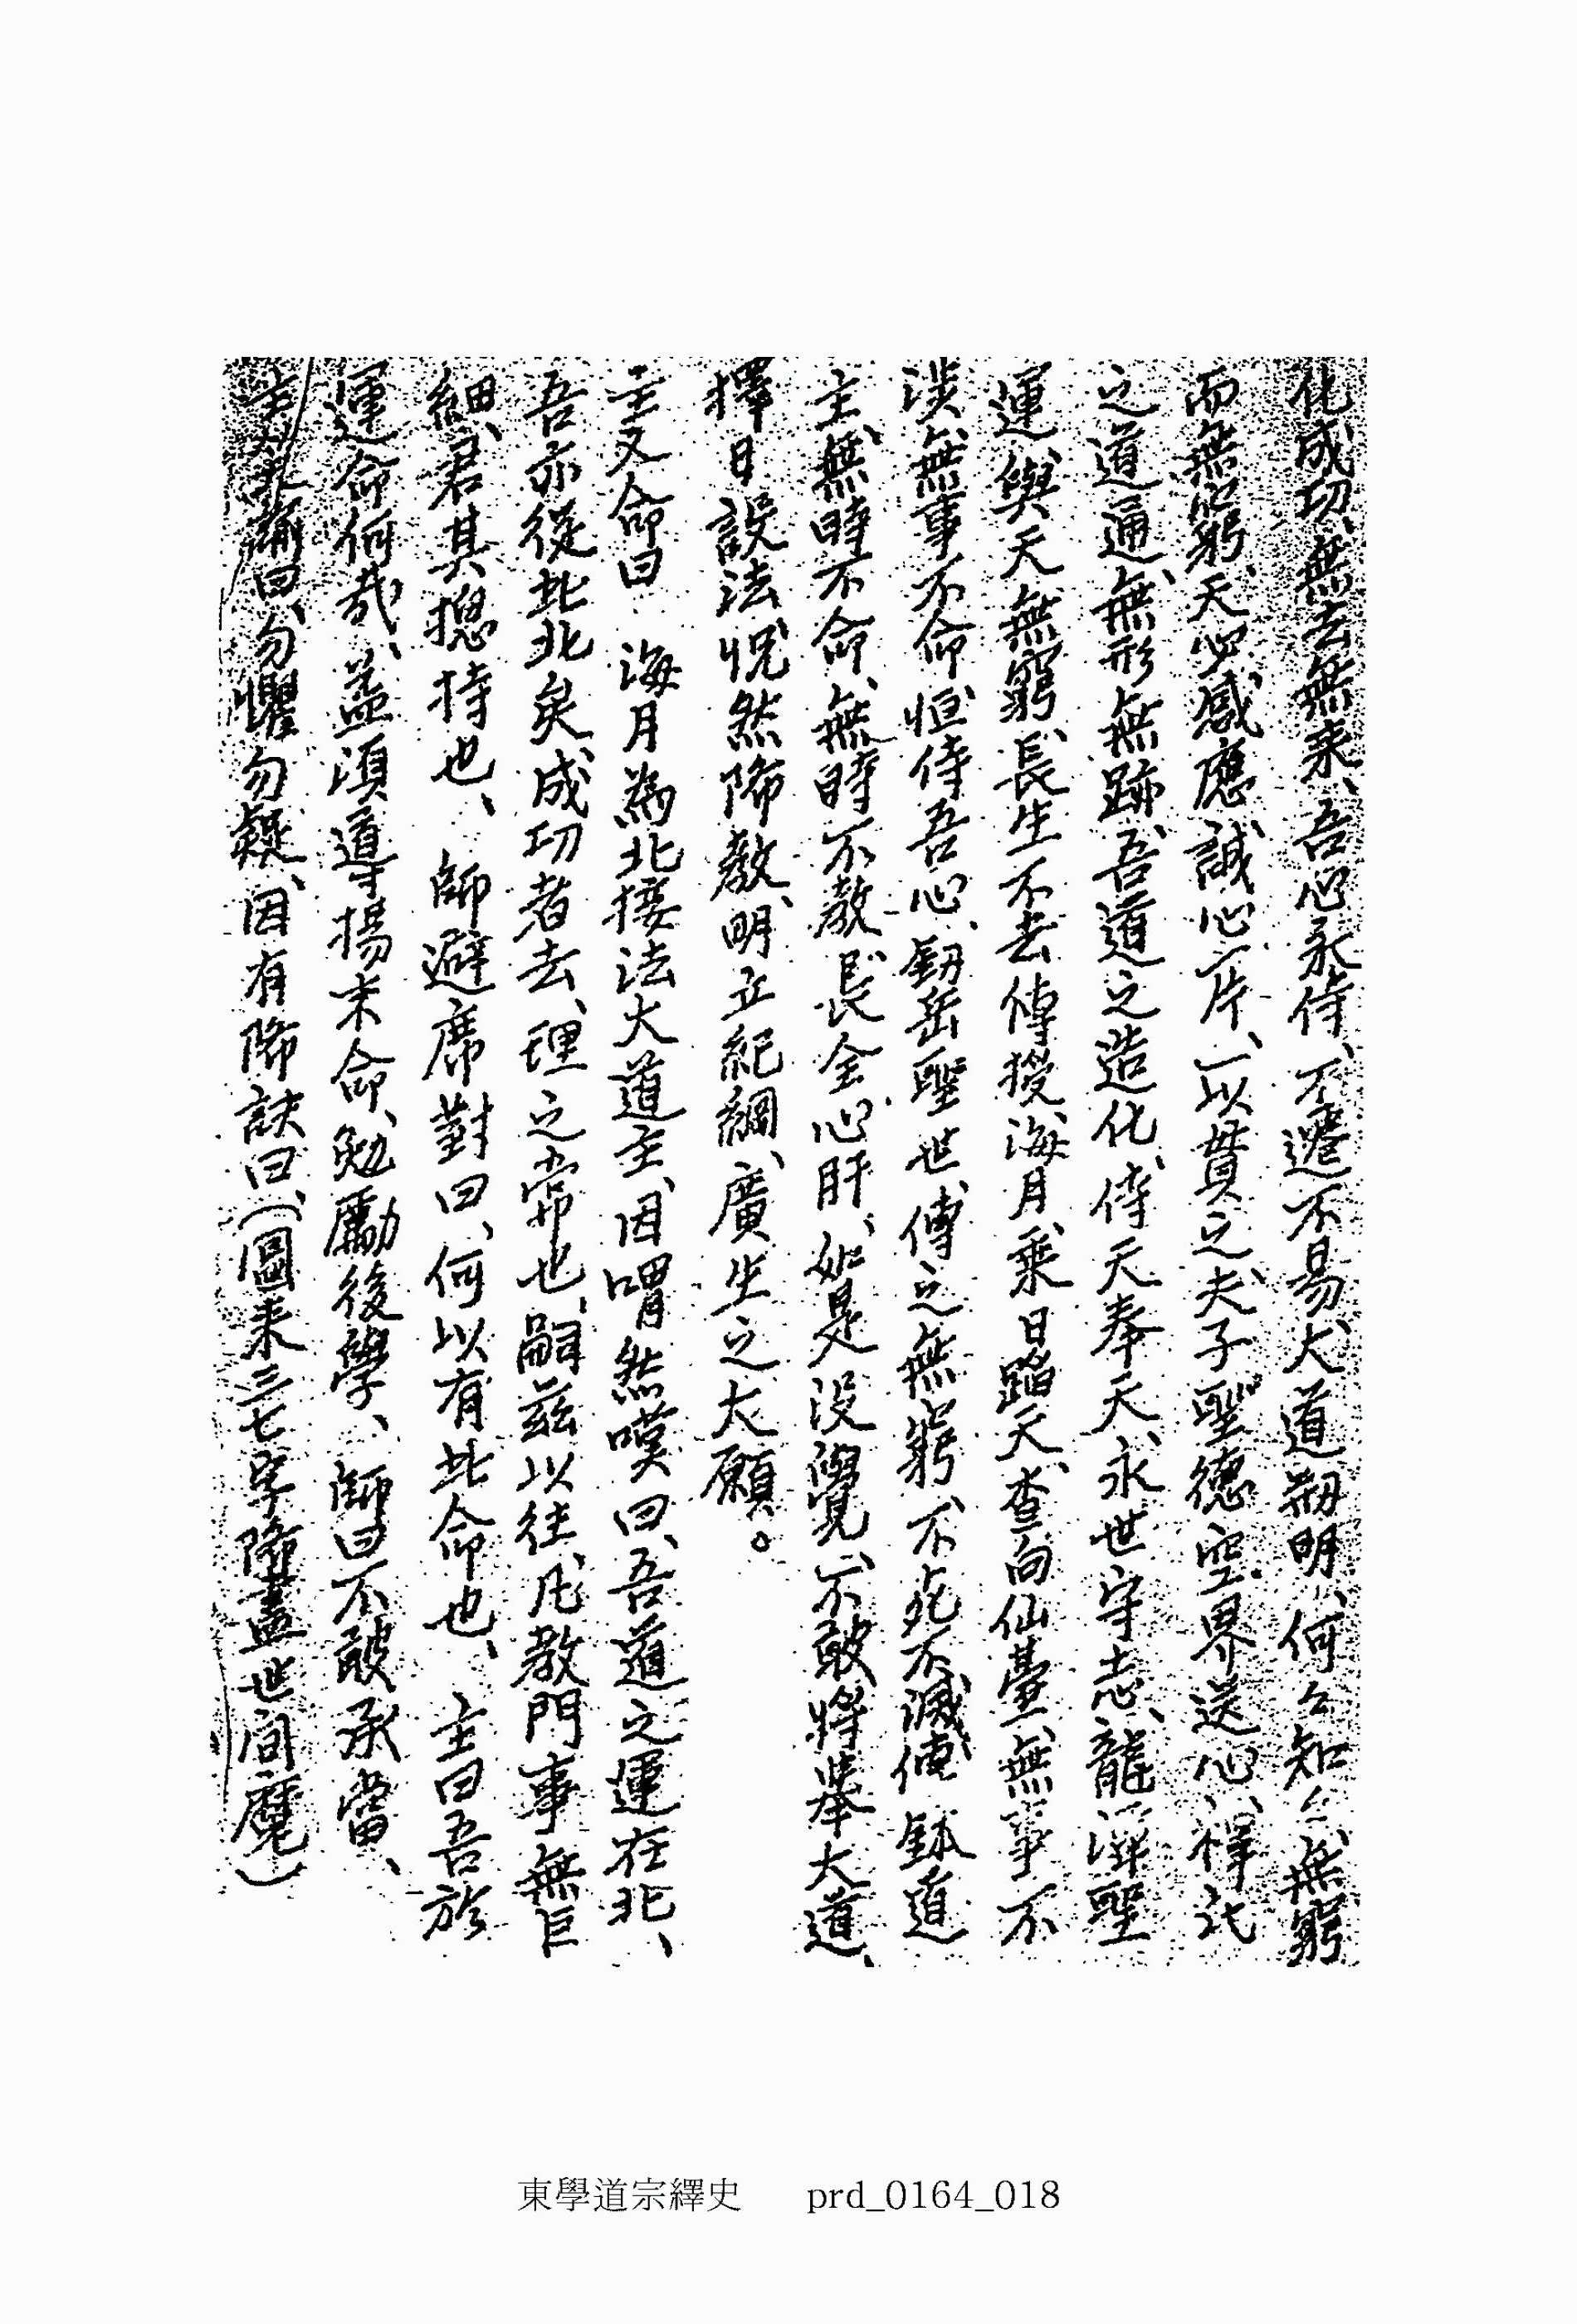 化成功、無去無来、吾心永侍、不遷不易、大道剏明、何々知々、無窮
而無窮、天必感應、誠心一片、一以貫之、夫子聖德、空界送心、禪託
之道通、無形無跡、吾道之造化、侍天奉天、永世守志、龍潭聖
運、與天無窮、長生不去、傳授海月、乘日蹈天、查向仙臺、無事不
涉、無事不命、恒侍吾心、釼岳聖世、傳之無窮、不死不滅、傳鉢道
主、無時不命、無時不敎、長全心肝、如是没覺、不敢將擧大道、
擇日設法、怳然降敎、明立紀綱、廣坐之大願。
主又命曰 海月為北接法大道主、因喟然嘆曰、吾道之運在北、
吾亦從此北矣、成功者去、理之常也、嗣兹以往、凡教門事無巨
細、君其摠持也、 師避席對曰、何以有此命也、 主曰吾於
運命何哉、益須導揚末命、勉勵後學、 師曰不敢承當、
主 諭曰、勿懼勿疑、因有降訣曰、(圖来三七字降盡世间魔)
東學道宗繹史 prd_0164_018